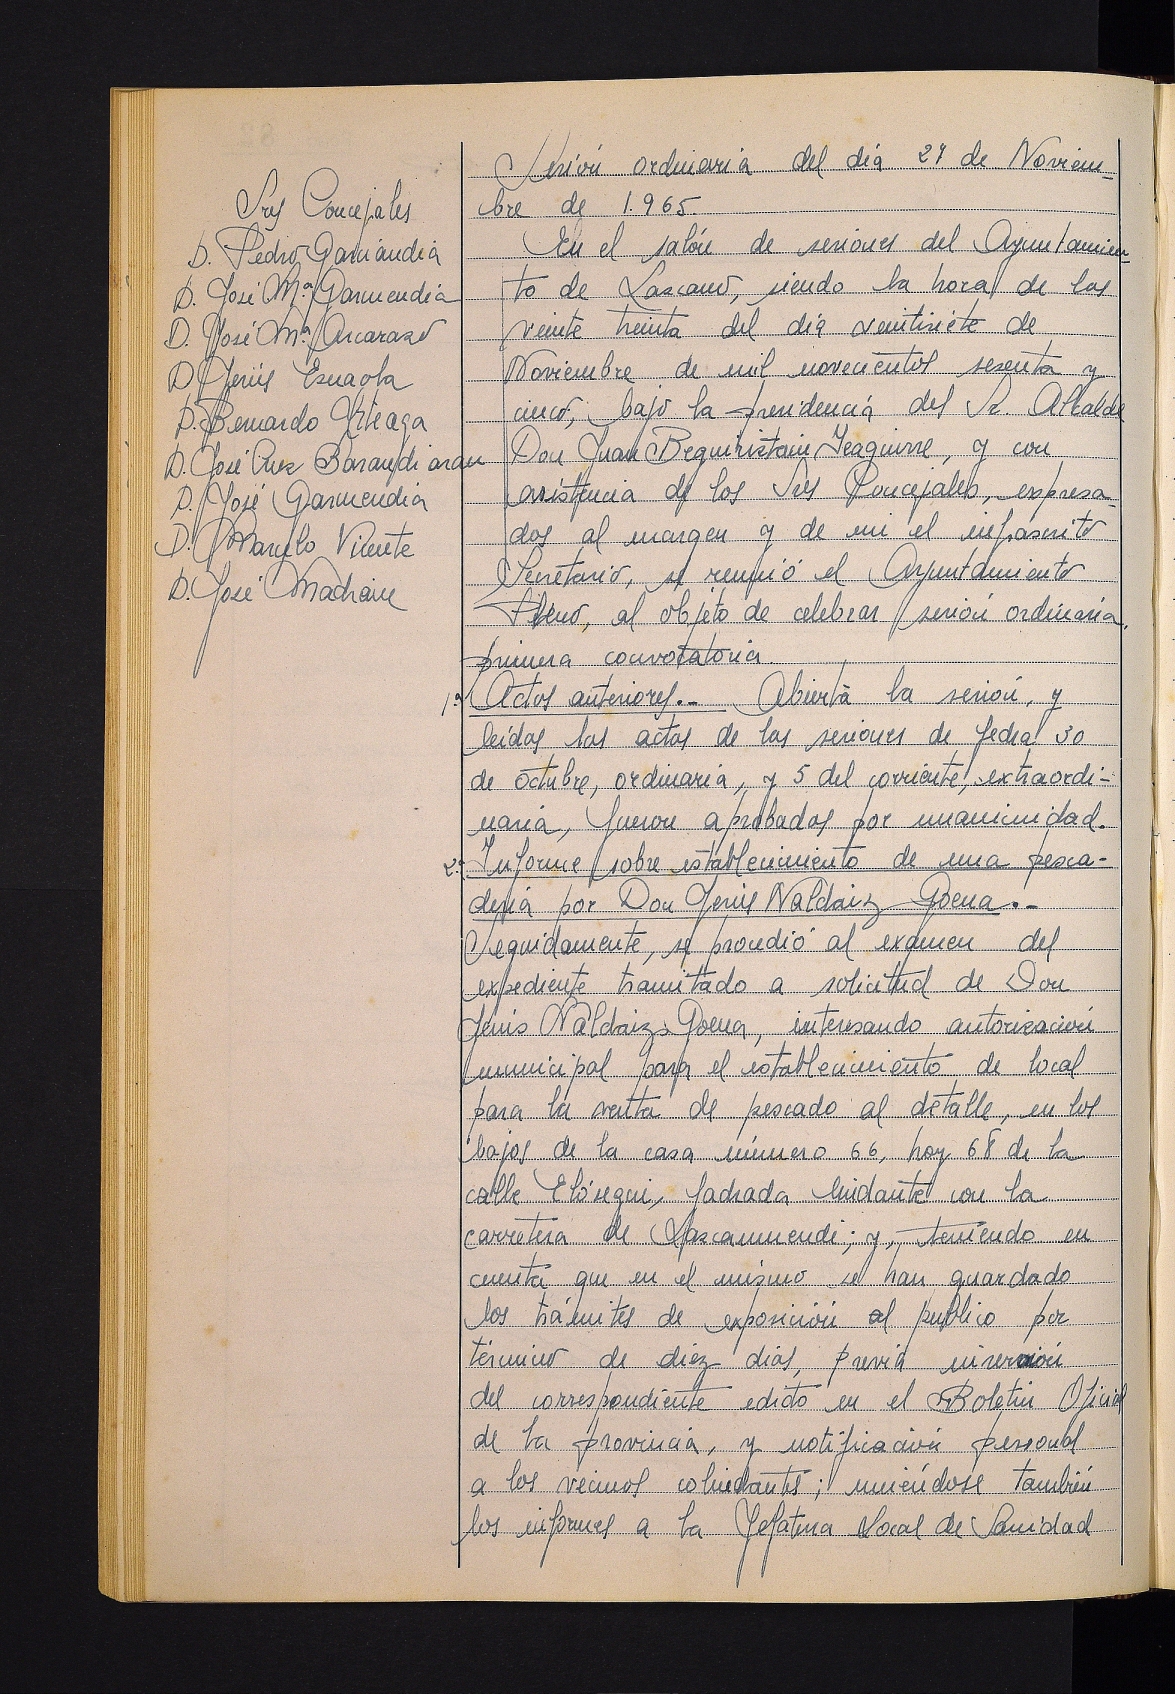 Sesión ordinaria del día 27 de Noviem-
bre de 1.965.
Sres Concejales
D. Pedro Garciandia
D. José Mª Garmendia
D. José Mª Ascarazo
D. Jesús Esnaola
D. Bernardo Urteaga
D. José Cruz Barandiaran
D. José Garmendia
D. Marcelo Vicente
D. José Madrane
En el salón de sesiones del Ayuntamien-
to de Lazcano, siendo la hora de las
veinte treinta del día veintisiete de
Noviembre de mil novecientos sesenta y
cinco, bajo la presidencia del Sr Alcalde
Don Juan Beguiristain Izaguirre, y con
asistencia de los Sres Concejales, expresa-
dos al margen y de mi el infrascrito
Secretario, se reunió el Ayuntamiento
Pleno, al objeto de celebrar sesión ordinaria,
primera convocatoria.
1º Actos anteriores.- Abierta la sesión, y
leídas las actas de las sesiones de fecha 30
de octubre, ordinaria, y 5 del corriente, extraordi-
naria, fueron aprobadas por unanimidad.
2º Informe sobre establecimiento de una pesca-
dería por Don Jesús Naldaiz Goena.-
Seguidamente, se procedió al examen del
expediente tramitado a solicitud de Don
Jesús Naldaiz Goena, interesando autorización
municipal para el establecimiento de local
para la venta de pescado al detalle, en los
bajos de la casa número 66, hoy 68 de la
calle Elósegui, fachada lindante con la
carretera de Lazcanmendi; y, teniendo en
cuenta que en el mismo se han guardado
los trámites de exposición al publico por
término de diez días, previa inserción
del correspondiente edicto en el Boletín Oficial
de la provincia, y notificación personal
a los vecinos colindantes; uniéndose también
los informes a la Jefatura Local de Sanidad